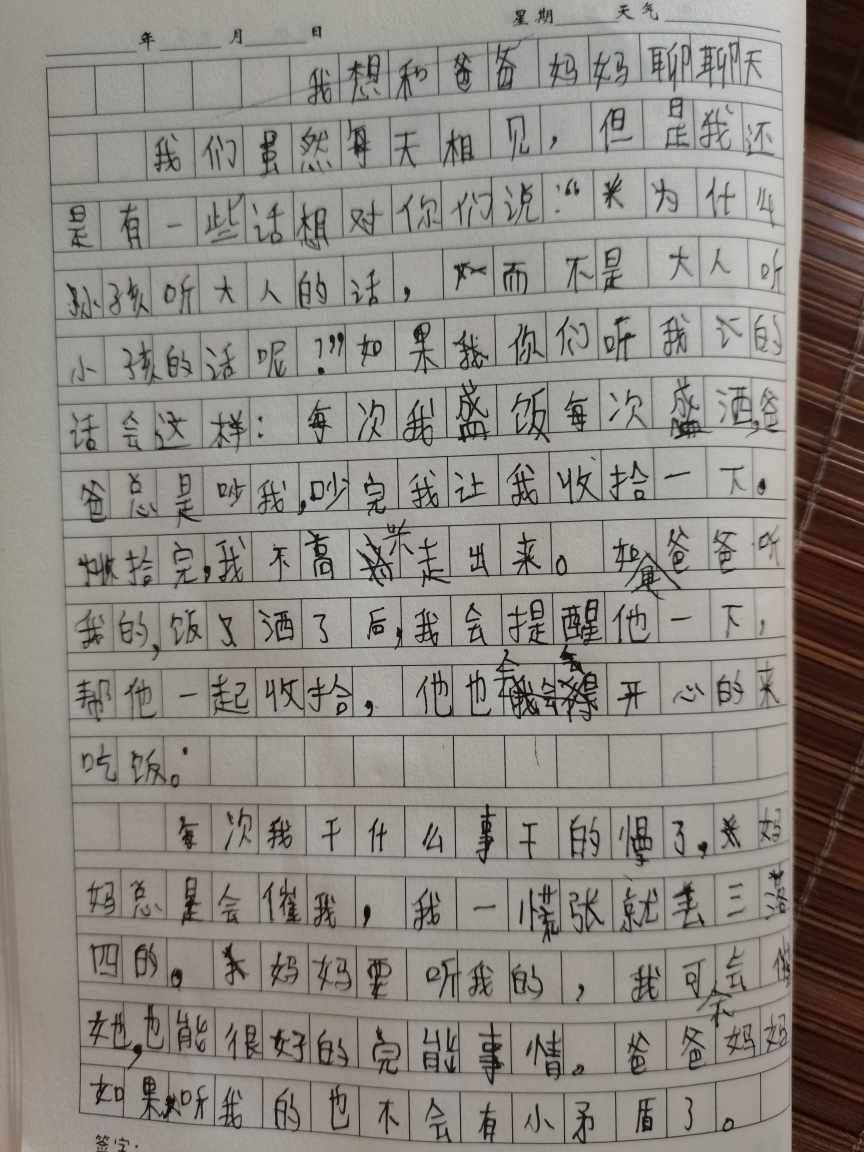 年 月 日 星期 天气
我想和爸爸妈妈聊聊天
我们虽然每天相见，但是我还
是有一些话想对你们说：“为什么
孩听大人的话，而不是大人听
小孩的话呢？”如果我你们听我的
话会这样：每次我盛饭每次盛洒，爸
爸总是吵我，吵完我让我收拾一下。
拾完，我不高兴走出来。如果爸爸听
我的，饭洒了后，我会提醒他一下，
帮他一起收拾，他也会开心的来
吃饭。
每次我干什么事干的慢了，妈
妈总是会催我，我一慌张就丢三落
四的。妈妈要听我的，我可会催
她，也能很好的完能事情。爸爸妈妈
如果听我的也不会有小矛盾了。
签字：